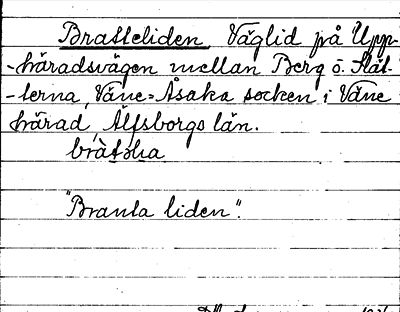 Bratteliden Väglid på Upp-
-häradsvägen mellan Berg o. Slät-
-terna, Väne-Åsaka socken i Väne
härad, Älfsborgs län.
"Branta liden".